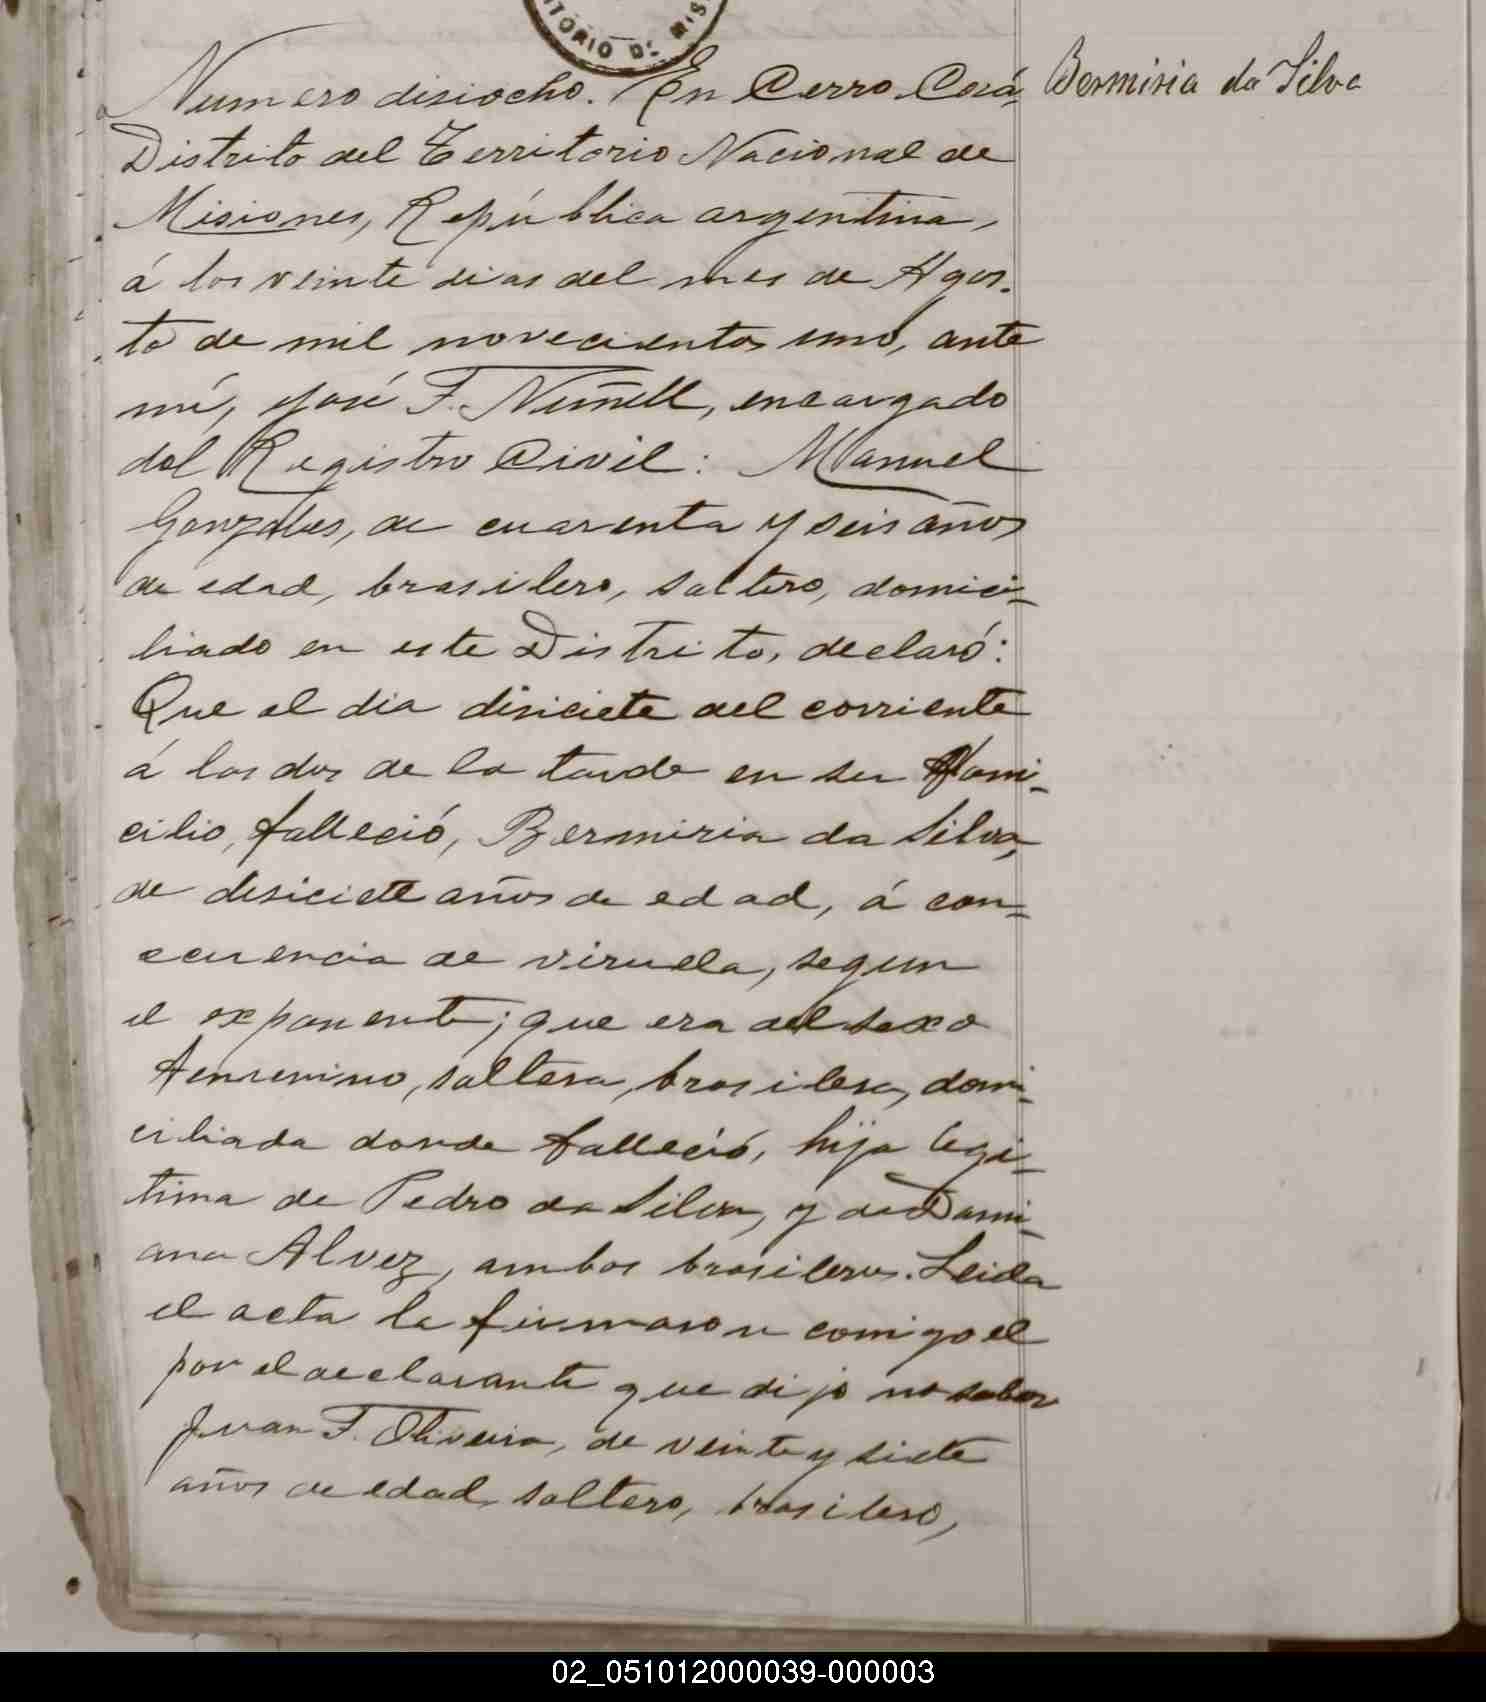 ITORIO DE MIS
Numero disiocho. En Cerro Corá
Distrito del Territorio Nacional de
Misiones, República argentina,
á los veinte dias del mes de Agos-
to de mil novecientos uno, ante
mí, José F. Nuñell, encargado
del Registro Civil: Manuel
Gonzales, de cuarenta y seis años
de edad, brasilero, soltero, domici-
liado en este Distrito, declaró:
Que el dia disiciete del corriente
á las dos de la tarde en su domi-
cilio, falleció, Bermiria da Silva,
de desiciete años de edad, á con-
cecuencia de viruela, segun
el exponente; que era del sexo
femenino, soltera, brasilera, domi-
ciliada donde falleció, hija legi-
tima de Pedro da Silva, y de Dami-
ana Alvez, ambos brasileros. Leida
el acta la firmaron comigo el
por el declarante que dijo no saber
Juan F. Oliveira, de veinte y siete
años de edad, soltero, brasilero,
Bermiria da Silva
02_051012000039-000003